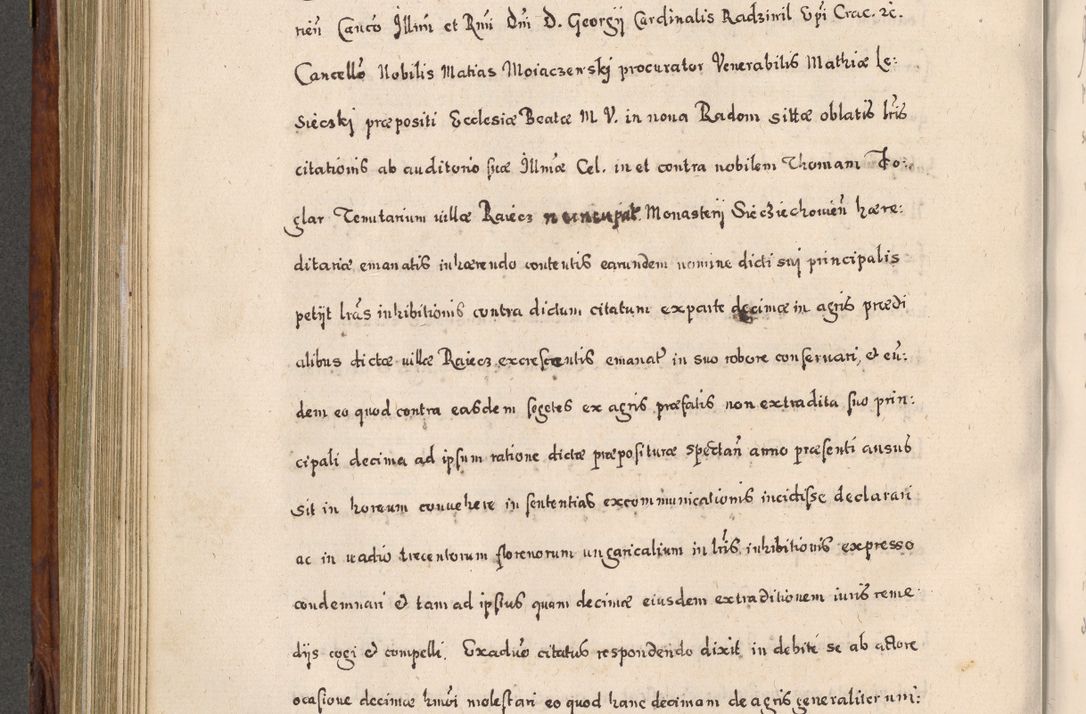 rień Cancō Jllmi et Rmi Dni D. Georgij Cardinalis Radzivil Epi Crac. &c.
Cancellō Nobilis Matias Moiaczenskj procurator Venerabilis Mathiæ Le:
siecskj præpositi Ecclesiæ Beatæ M V. in noua Radom sittæ oblatis lr̄is
citationis ab auditorio suæ Jllmæ Cel. in et contra nobilem Thomam Fo:
glar Tenutarium villæ Raiecz nuncupat. Monasterij Siecziechouień hære:
ditariæ emanatis inhærendo contentis earundem nomine dicti sui principalis
petijt lr̄as inhibitionis contra dictum citatum ex parte decimæ in agris prædi
alibus dictæ villæ Raiecz excrescentis emanat in suo robore conseruari, & eū:
dem eo quod contra easdem segetes ex agris præfatis non extradita suo prin:
cipali decima ad ipsum ratione dictæ præpositura spectań anno præsenti ausus
sit in horeum conuehere in sententias excommunicationis incidisse declarari
ac in uadio trecentorum florenorum ungaricalium in lr̄is inhibitionis expresso
condemnari & tam ad ipsius quam decimæ eiusdem extraditionem iuris reme
dijs cogi & compelli. Exaduō citatus respondendo dixit in debite se ab actore
ocasione decimæ hmōi molestari eo quod hanc decimam de agris generaliter uni: